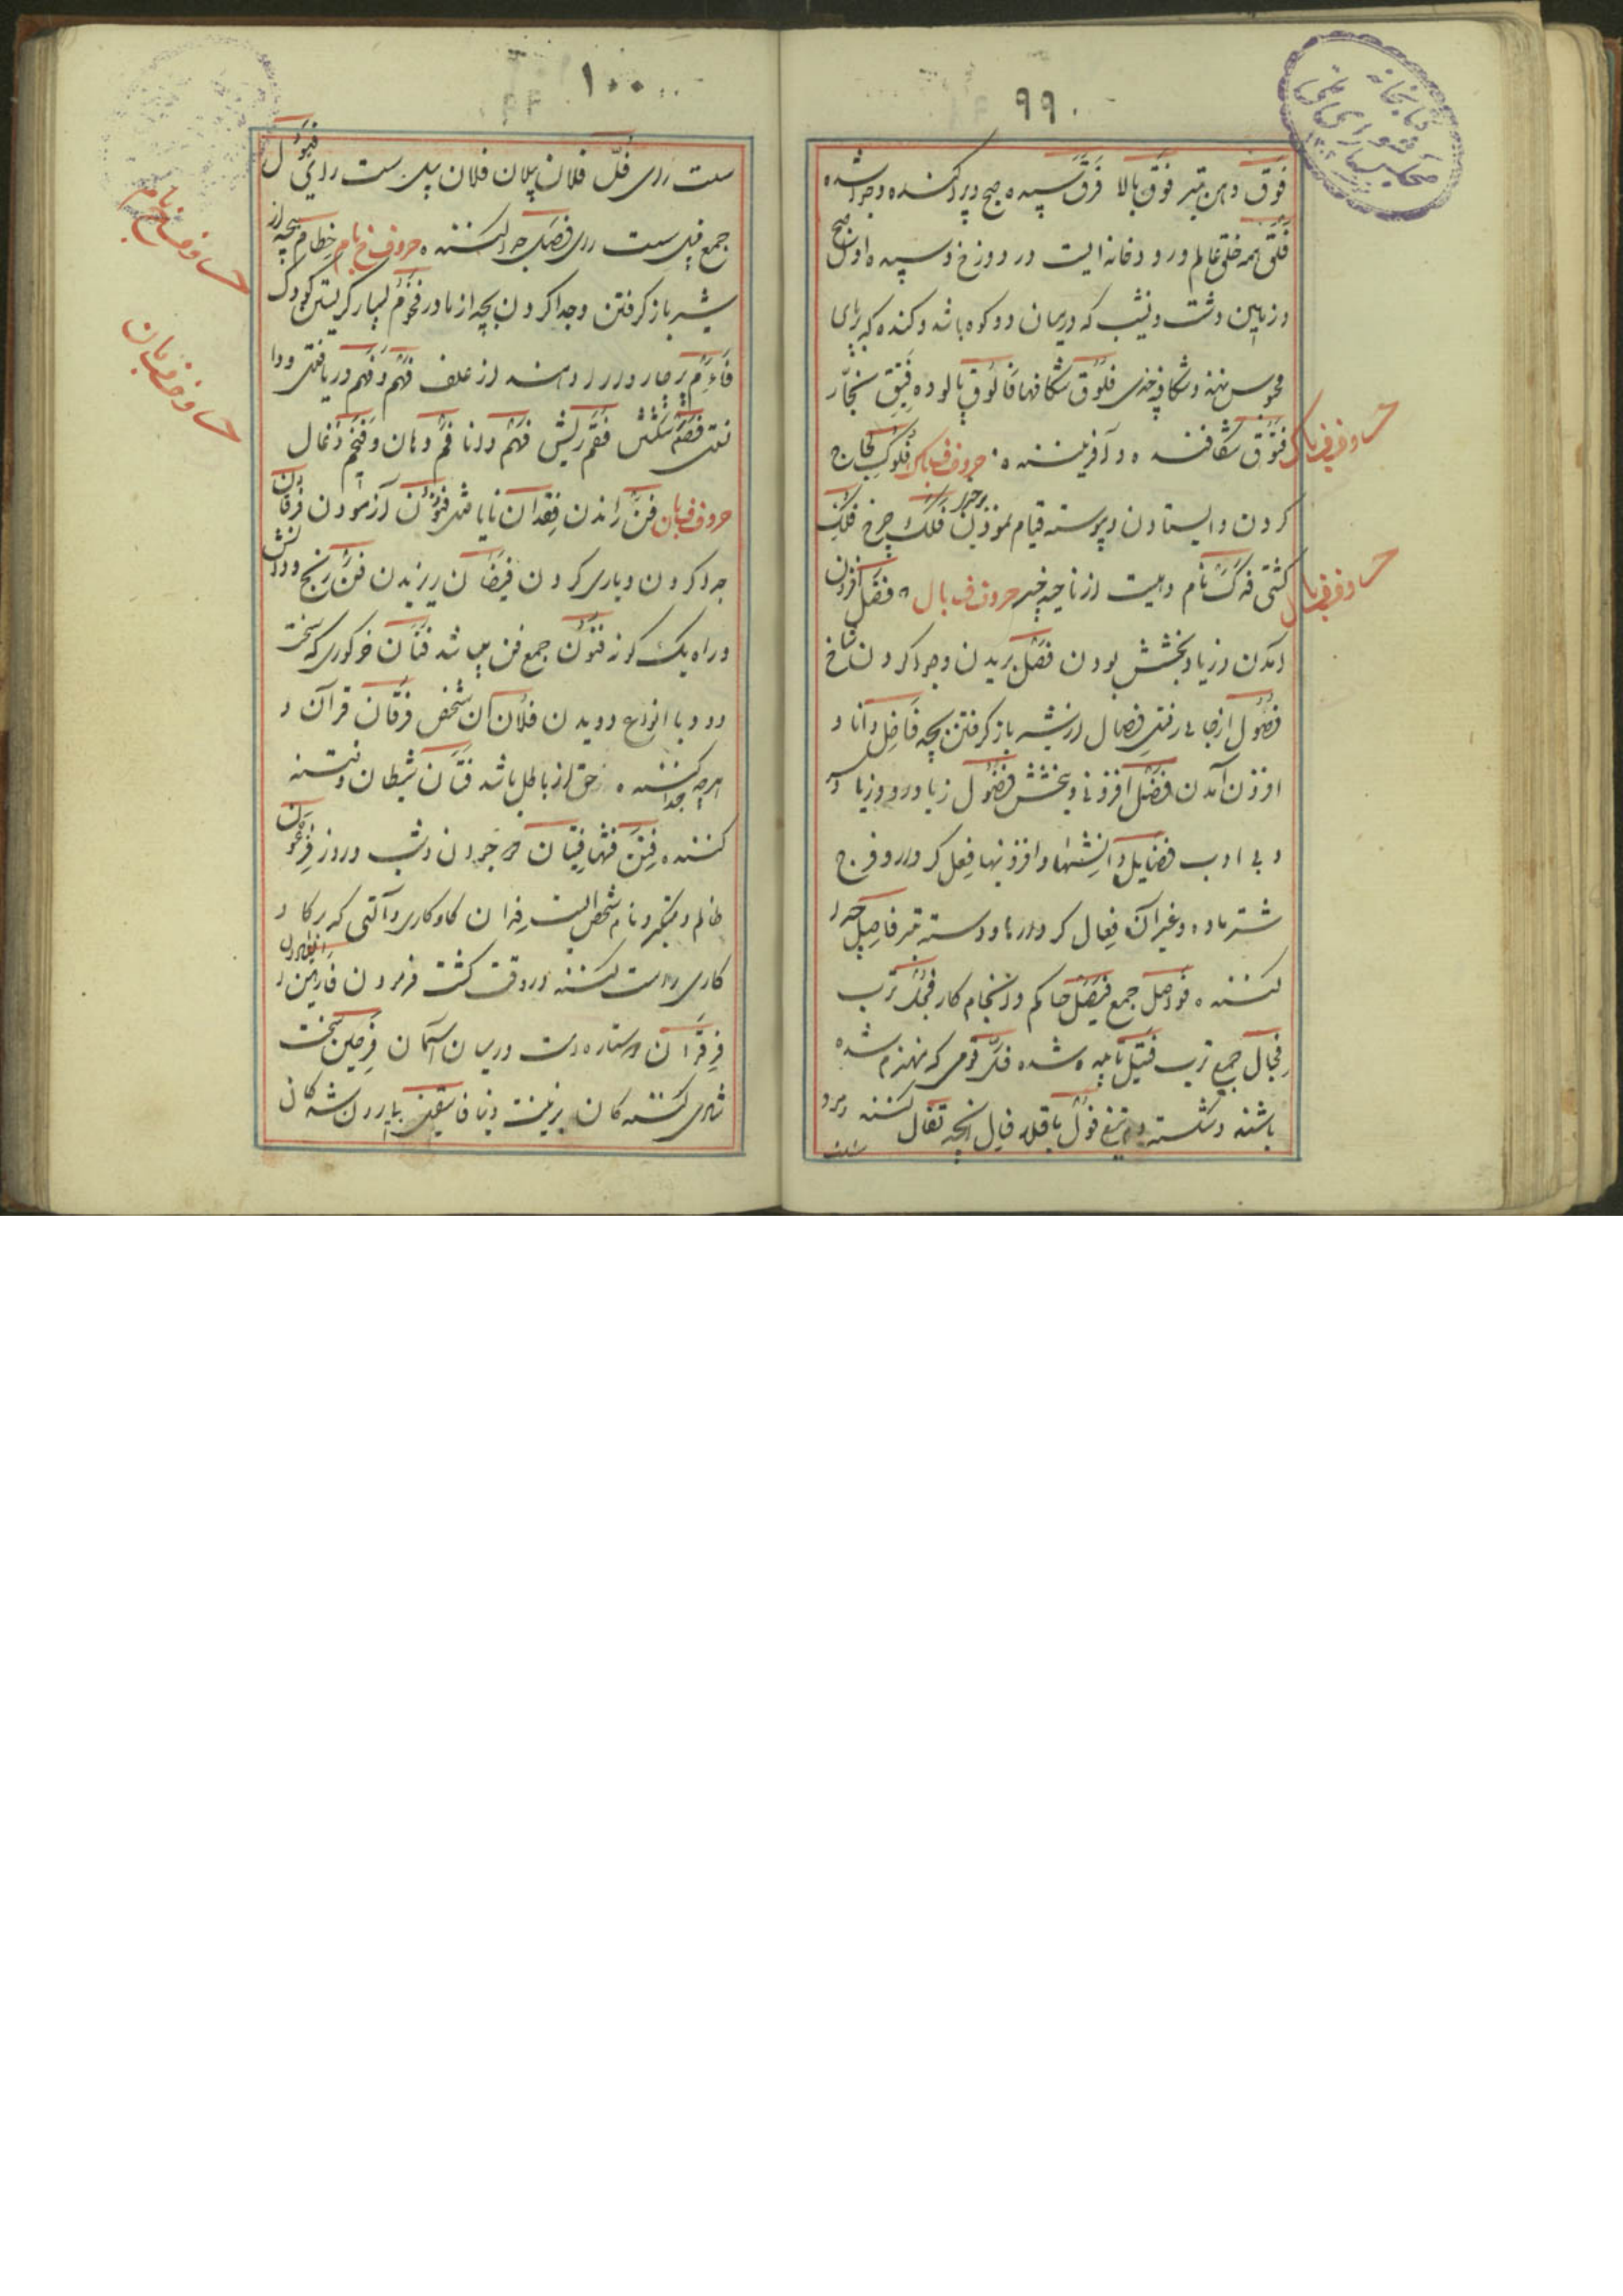 ۹۹
کتابخانه مجلس شورای ملی
فوق دهن تیر فوق بالا فرق سپیده صبح و پراکنده و جدا شده
فلق همه خلق عالم و رودخانه ایست در دوزخ و سپیده اول صبح
و زمین دشت و نشیب که درمیان دو کوه باشد و کنده که برپای
محبوس نهند و شکاف چیزی فلوق شکافها فالوق پالوده فیتق نجّار
فتوق شکافنده و آفریننده حروف ف باک فلوک لجاج
کردن و ایستادن و پیوسته قیام نمودن فلک چرخ فلک
کشتی فدک نام دهیست از ناحیه خیبر حروف ف بال فضل افزون
آمدن و زیاد بخشش بودن فصل بریدن و جدا کردن شاخ
فصول از جایی رفتن فصال از شیر باز گرفتن بچه فاضل دانا و
افزون آمدن فضل افزونی و بخشش فضول زیادرو و زیاد
و بی ادب فضایل دانشها و افزونیها فعل کردار و فرج
شتر ماده و غیر آن فعال کردارها و دسته تبر فاصل جدا
کننده فواصل جمع فیصل حاکم و انجام کار فجل ترب
فجال جمع ترب فتیل تابیده شده فلّ قومی که منهزم شده
باشند و شکسته تیغ فول باقلا فیال آنچه تفال کننده و مرد
حروف ف باک
حروف ف بال
۱۰۰
سست رای فلّ فلان پلان فلان پیل سست رای فیول
جمع فیل سست رای فصیل جدا کننده حروف ف بام فطام بچه از
شیر باز گرفتن و جدا کردن بچه از مادر فحوم بسیار گریستن کودک
فهم و فهم دریافتن و دا
نستن فصم شکستن فهم دانا فم دهان و فحم ذغال
حروف ف بان فنّ راندن فقدان نایافتن فتون آزمودن فرقان
جدا کردن و یاری کردن فیضان ریزیدن فنّ رنج و دانش
و راه یک گونه فنون جمع فن میباشد فتان خرگوری که سخت
دود با انواع دویدن فلان آن شخص فرقان قرآن و
هرچه جدا کننده حق از باطل باشد فتان شیطان و فتنه
کننده فتن فتنها فتیان دو جردن و شب و روز فرعون
ظالم و متکبر و نام شخص ایست فدان گاو کاری و آلتی که بر گاو
کاری راست کنند در وقت کشت فرمودن فارهین
فرقدان دو ستاره است درمیان آسمان فرحین سخت
شادی کننده گان بزینت دنیا فاسقین بیرون شده گان
حروف ف بام
حروف ف بان